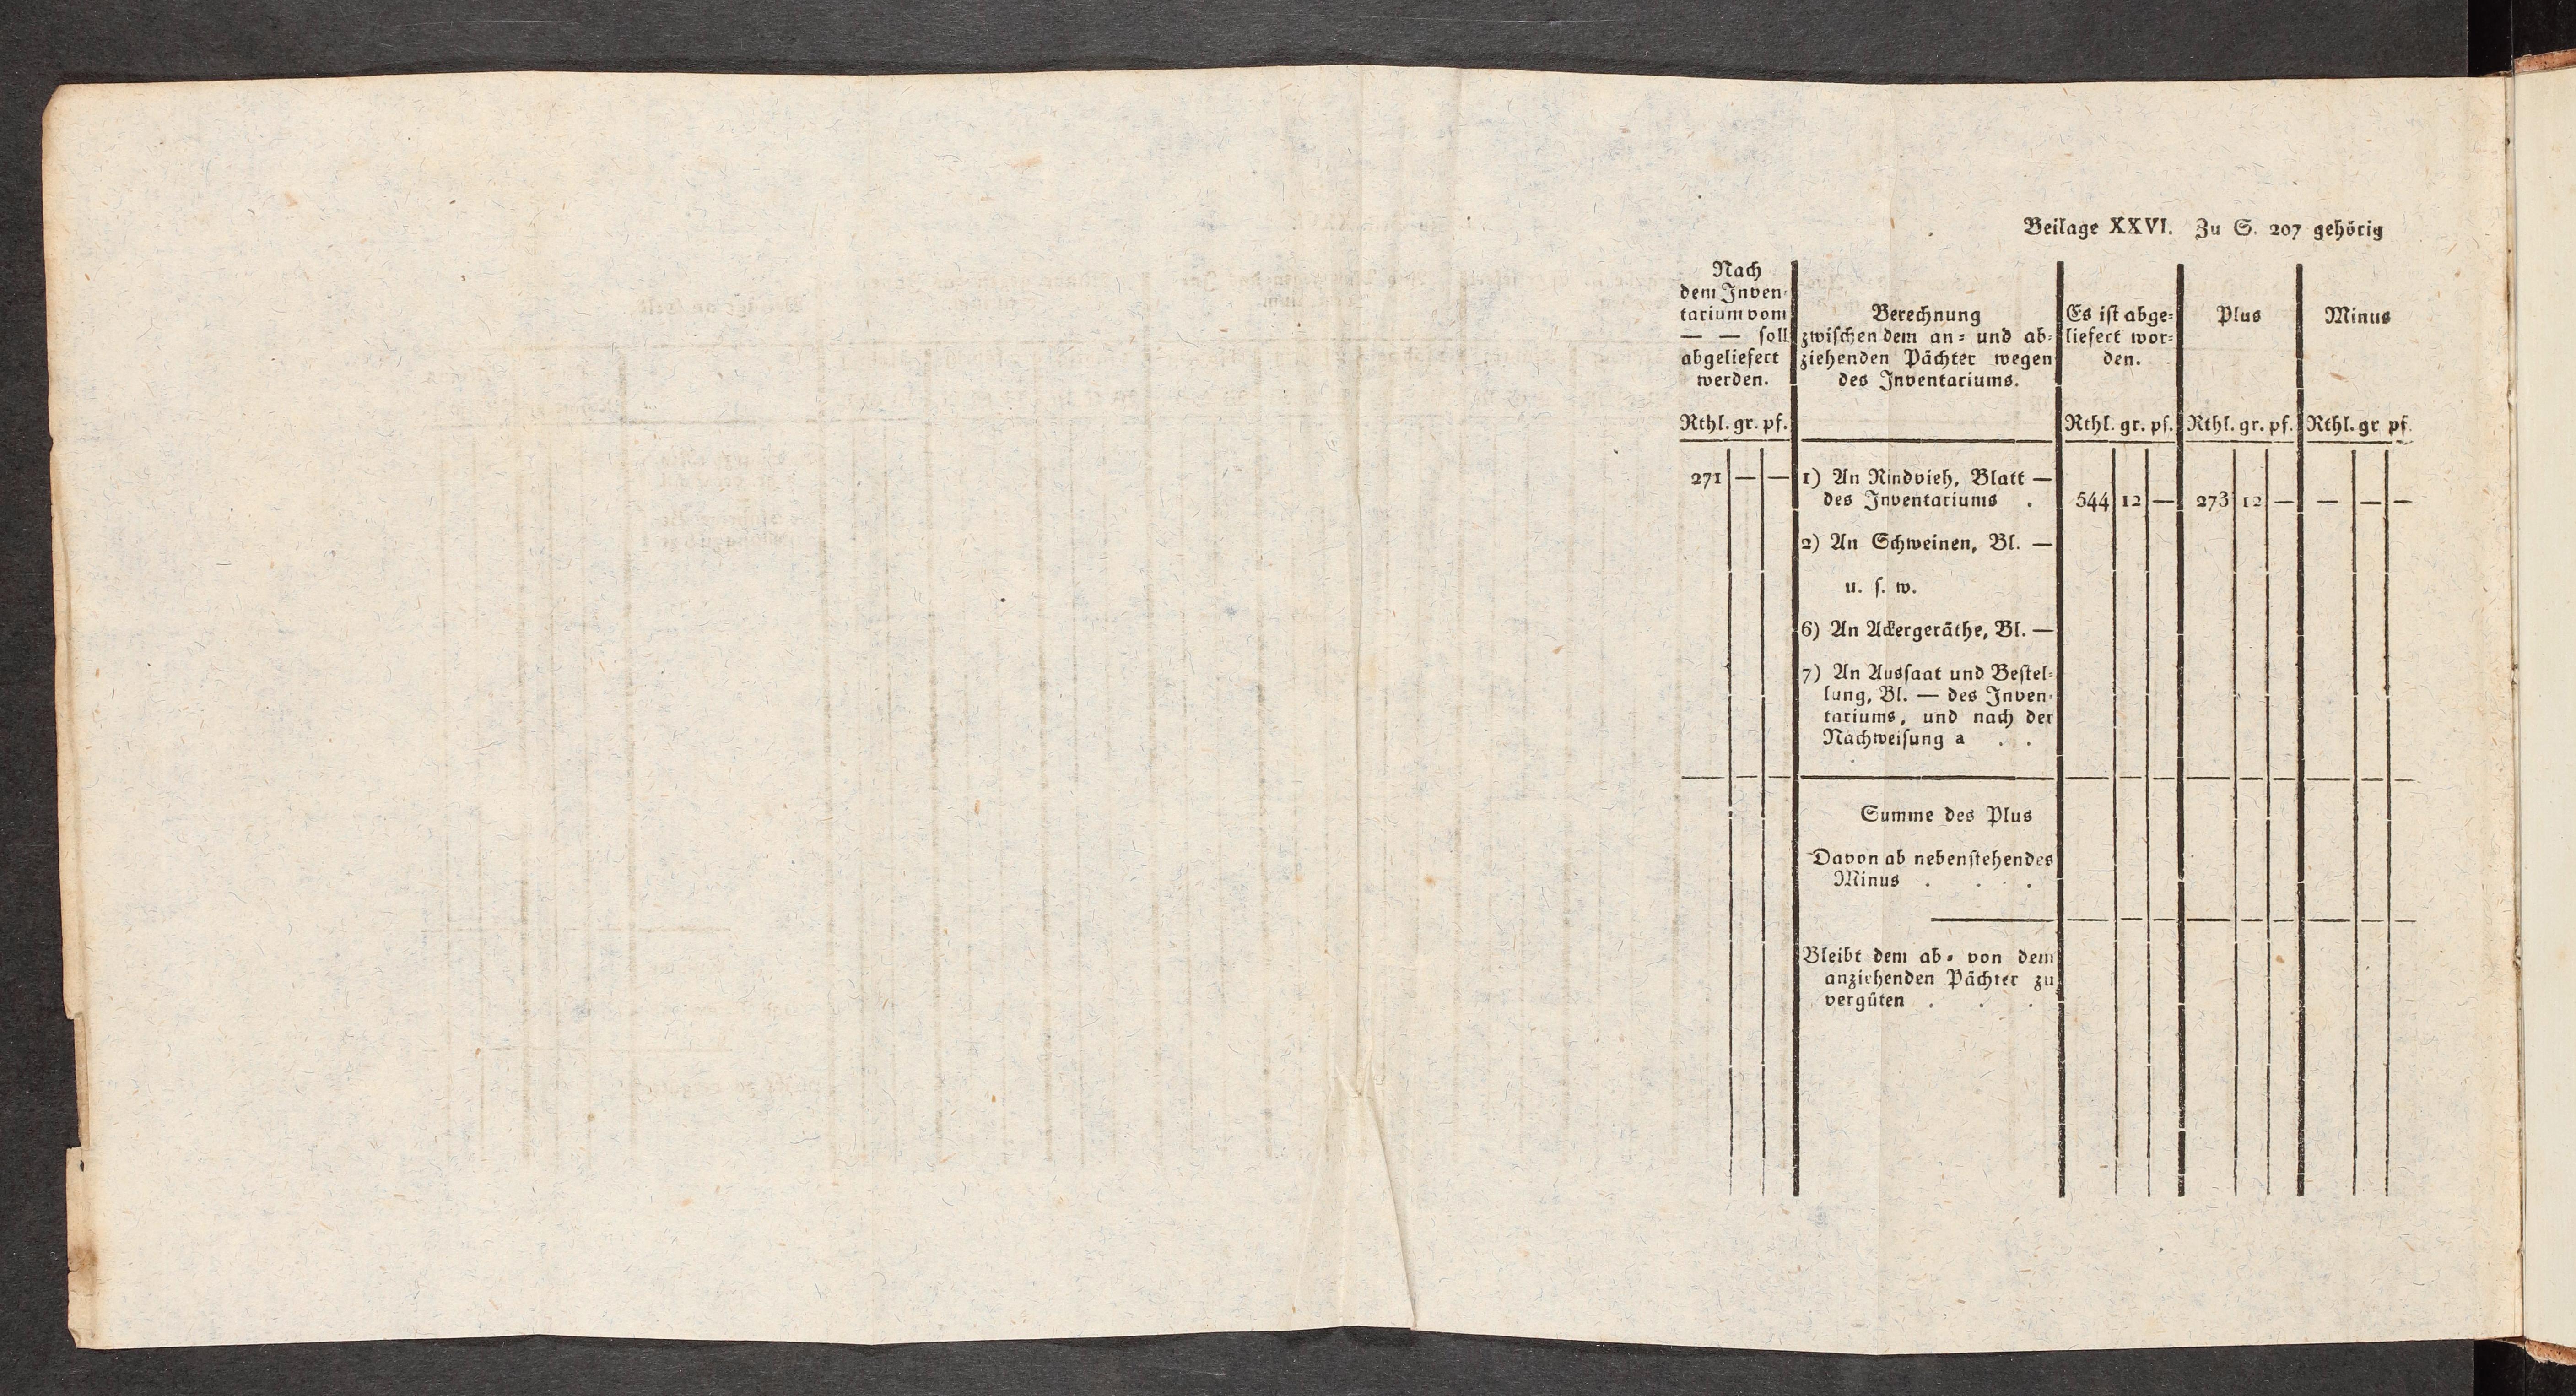 Beilage XXVI. Zu S. 207 gehörig
Nach
dem Inven-
tarium vom
— — soll
abgeliefert
werden.
Berechnung
zwischen dem an- und ab-
ziehenden Pächter wegen
des Inventariums.
Es ist abge-
liefert wor-
den.
Plus
Minus
Rthl. gr. pf.
Rthl. gr. pf.
Rthl. gr. pf.
Rthl. gr pf.
271 — —
1) An Rindvieh, Blatt —
des Inventariums .
544 12 —
273 12 —
— — —
2) An Schweinen, Bl. —
u. s. w.
6) An Ackergeräthe, Bl. —
7) An Aussaat und Bestel-
lung, Bl. — des Inven-
tariums, und nach der
Nachweisung a . .
Summe des Plus
Davon ab nebenstehendes
Minus . . .
Bleibt dem ab- von dem
anziehenden Pächter zu
vergüten . . .